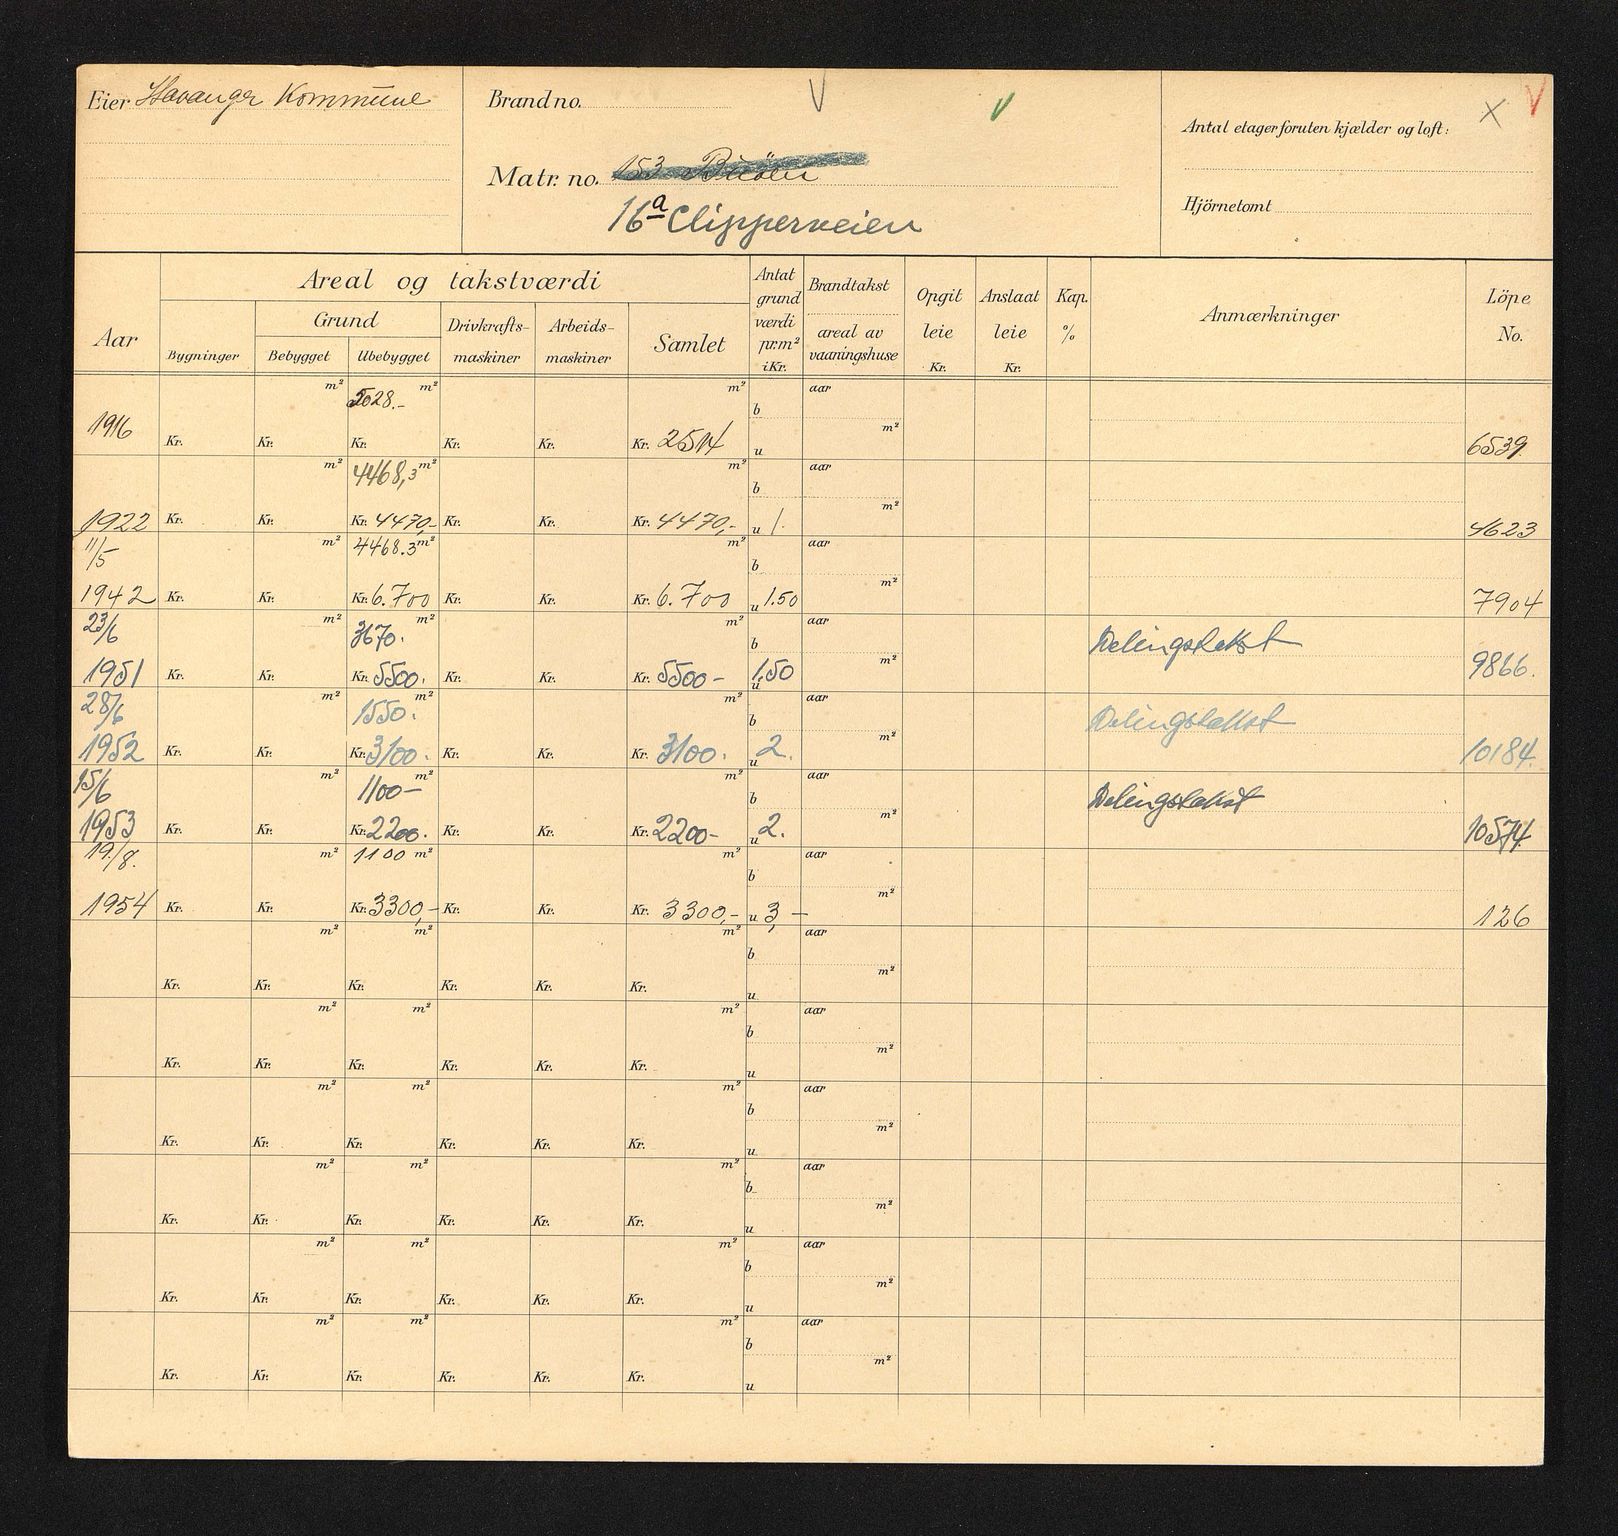 Eier Stavanger Kommune
Brand no.
Matr. no. 153 Buöen
16a Clipperveien
Antal etager foruten kjælder og loft:
Hjörnetomt
Aar
Areal og takstværdi
Bygninger
Grund
Bebygget
Ubebygget
Drivkrafts-maskiner
Arbeids-maskiner
Samlet
Antat grund værdi pr. m² i Kr.
Brandtakst
areal av vaaningshuse
Opgit leie Kr.
Anslaat leie Kr.
Kap. %
Anmærkninger
Löpe No.
m² 5028.- m² m² b aar
1916 Kr. Kr. Kr. Kr. Kr. Kr. 2514 u m² 6539
m² 4468,3 m² m² b aar
1922 Kr. Kr. Kr. 4470,- Kr. Kr. Kr. 4470,- u 1. m² 4623
11/5 m² 4468.3 m² m² b aar
1942 Kr. Kr. Kr. 6.700 Kr. Kr. Kr. 6.700 u 1.50 m² 7904
23/6 m² 3670. m² m² b aar Delingstakst
1951 Kr. Kr. Kr. 5500. Kr. Kr. Kr. 5500- u 1.50 m² 9866.
28/6 m² 1550. m² m² b aar Delingstakst
1952 Kr. Kr. Kr. 3100. Kr. Kr. Kr. 3100. u 2. m² 10184.
15/6 m² 1100- m² m² b aar Delingstakst
1953 Kr. Kr. Kr. 2200. Kr. Kr. Kr. 2200- u 2. m² 10574
19./8. m² 1100 m² m² b aar
1954 Kr. Kr. Kr. 3300,- Kr. Kr. Kr. 3300,- u 3,- m² 126
m² m² m² b aar
Kr. Kr. Kr. Kr. Kr. Kr. u m²
m² m² m² b aar
Kr. Kr. Kr. Kr. Kr. Kr. u m²
m² m² m² b aar
Kr. Kr. Kr. Kr. Kr. Kr. u m²
m² m² m² b aar
Kr. Kr. Kr. Kr. Kr. Kr. u m²
m² m² m² b aar
Kr. Kr. Kr. Kr. Kr. Kr. u m²
m² m² m² b aar
Kr. Kr. Kr. Kr. Kr. Kr. u m²